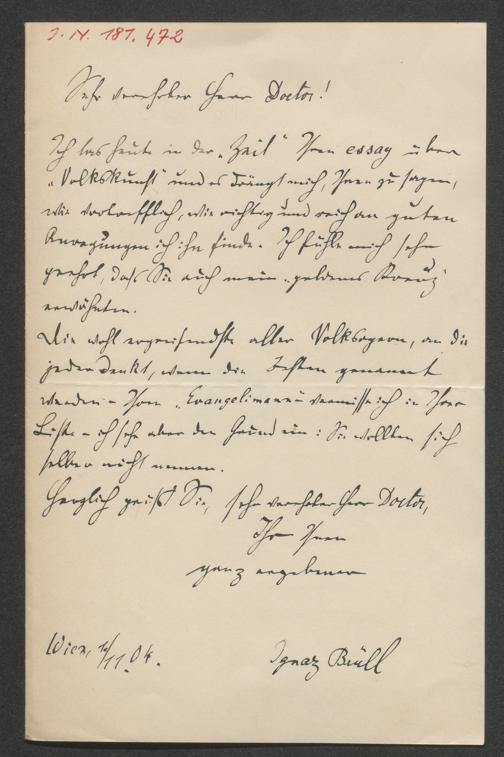 I. N. 181.472
Sehr verehrter Herr Doctor!
Ich las heute in der „Zeit" Ihren essay über
„Volkskunst" und es drängt mich, Ihnen zu sagen,
wie vortrefflich, wie richtig und reich an guten
Anregungen ich ihn finde. Ich fühle mich sehr
geehrt, daß Sie auch mein „goldenes Kreuz"
erwähnten.
Die wohl ergreifendste aller Volksopern, an die
jeder denkt, wenn die besten genannt
werden – Ihren „Evangelimann" vermisse ich in Ihrer
Liste – ich sehe aber den Grund ein: Sie wollten sich
selber nicht nennen.
Herzlich grüßt Sie, sehr verehrter Herr Doctor,
Ihr Ihnen
ganz ergebener
Wien, 11.04.
Ignaz Brüll